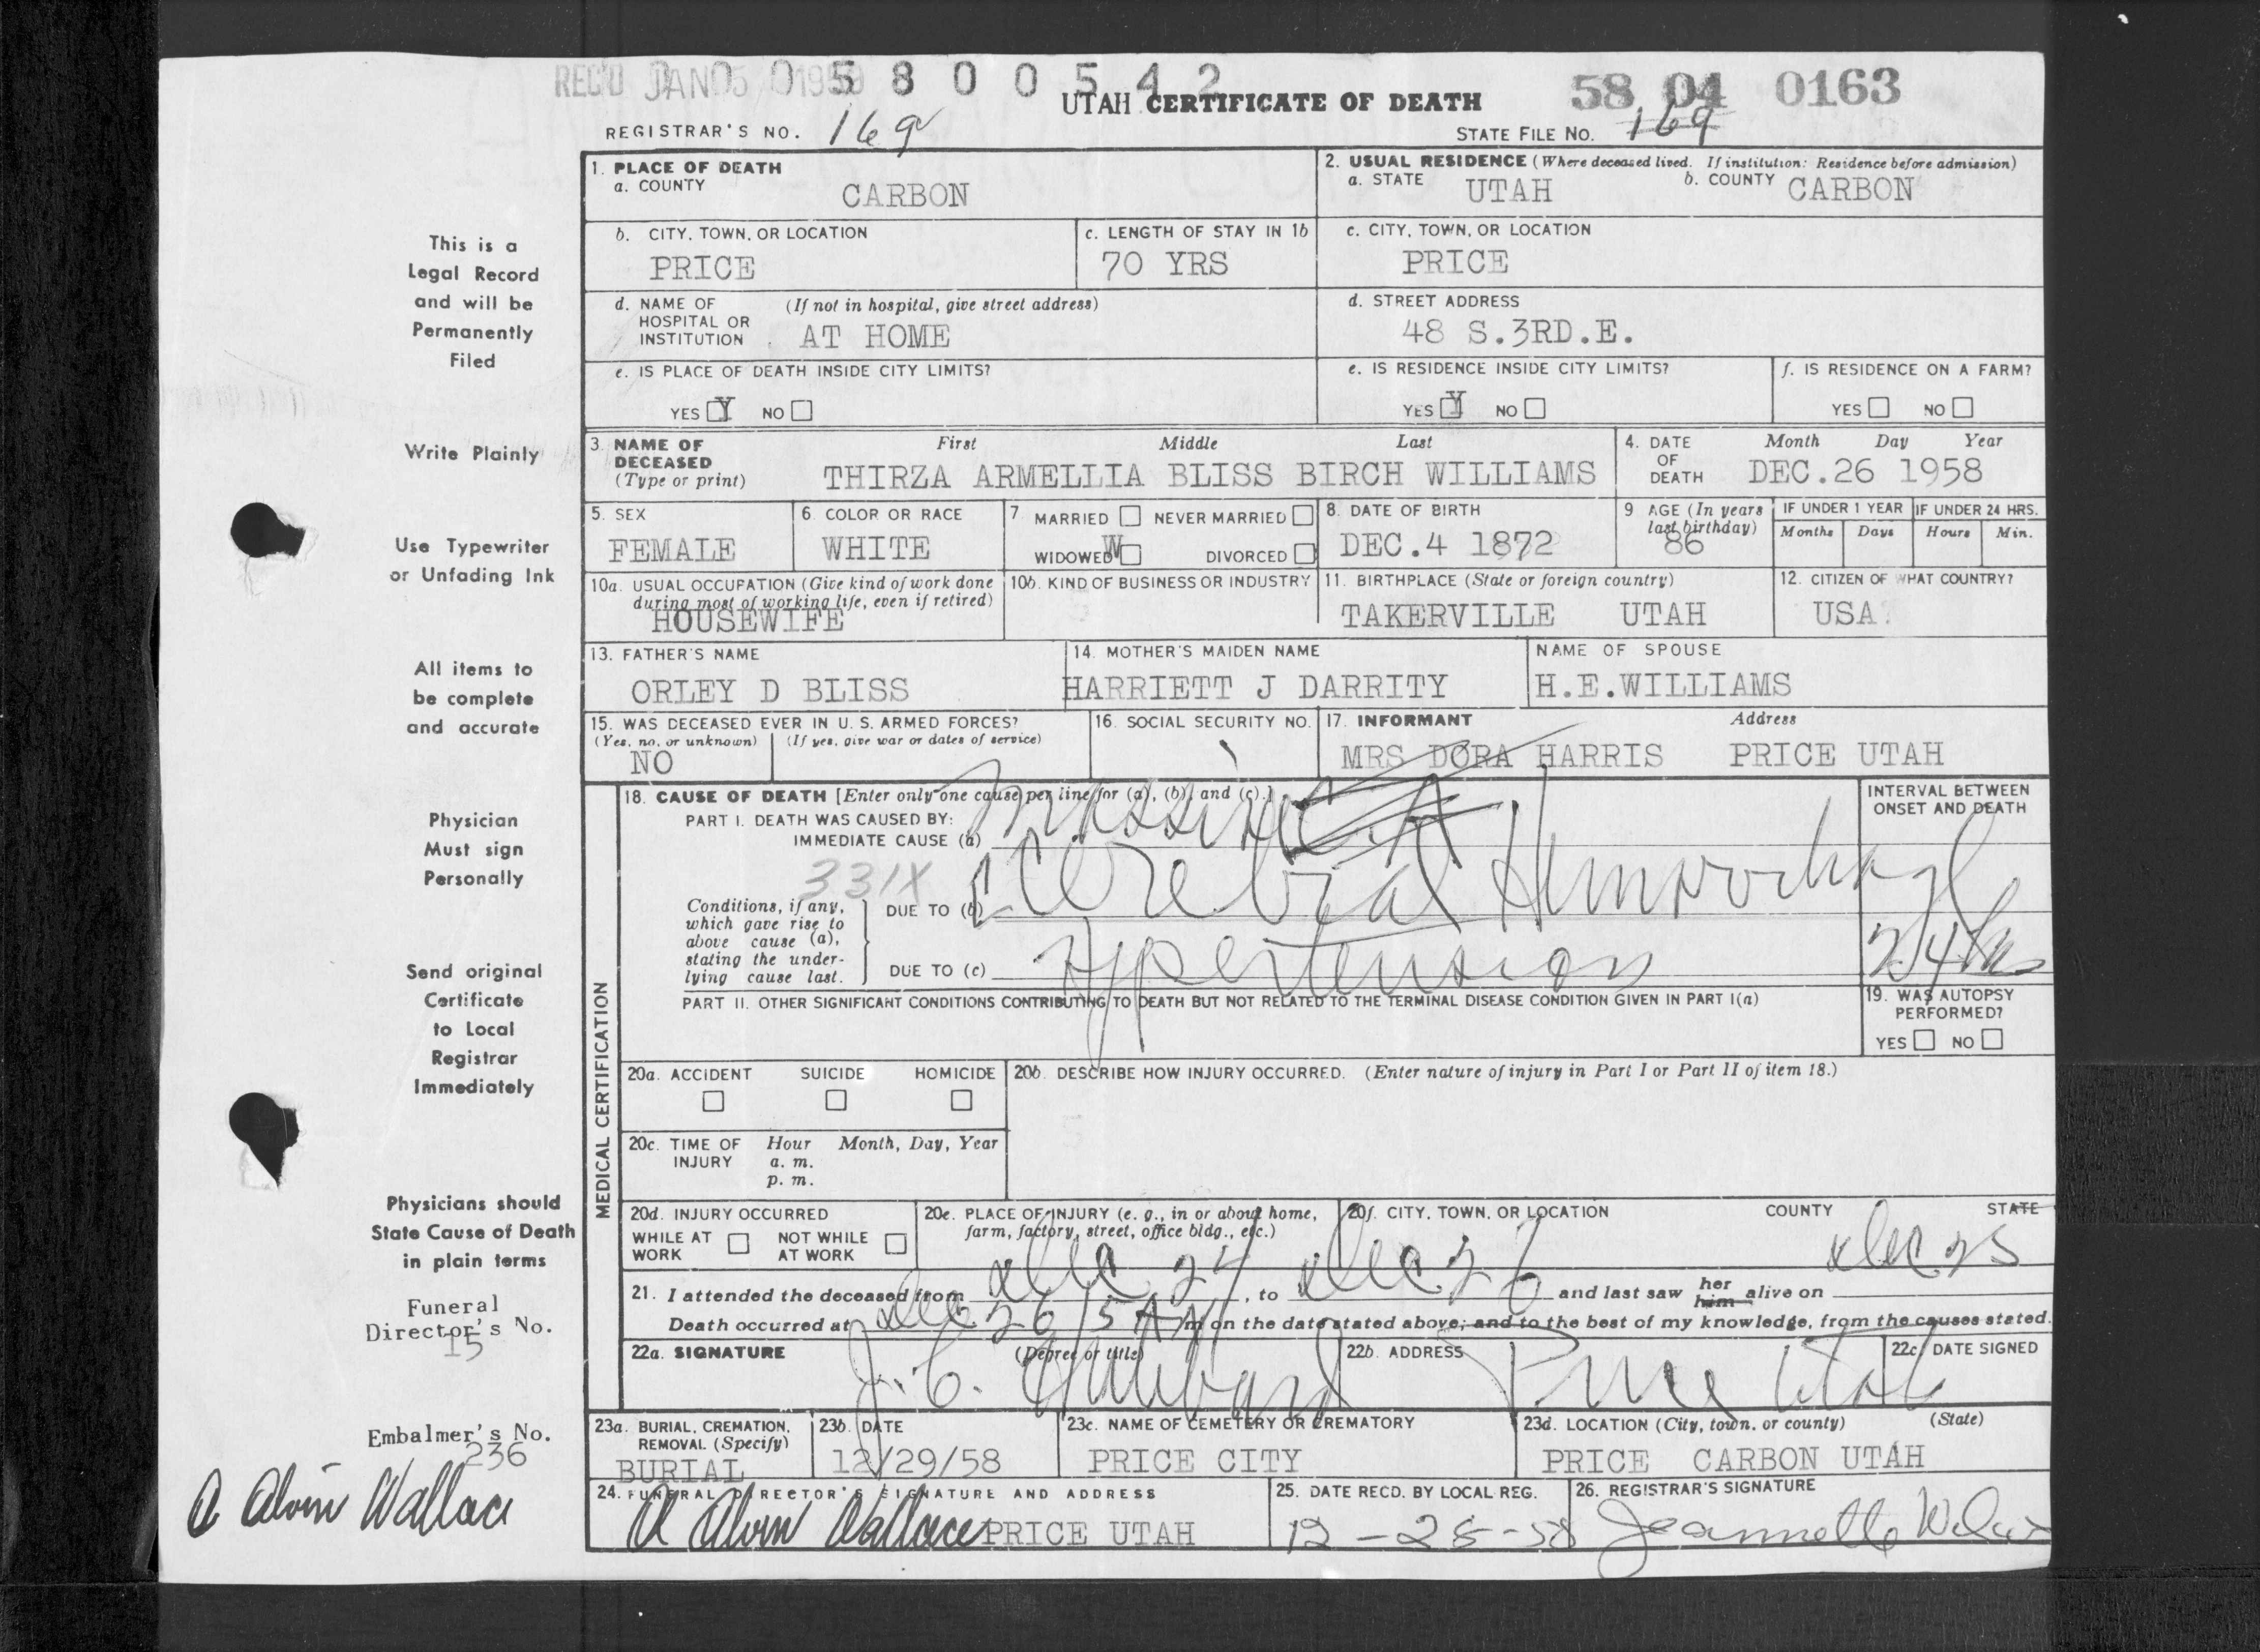 REC'D JAN 5 1959 0 0 5 8 0 0 5 4 2
58 04 0163
UTAH CERTIFICATE OF DEATH
REGISTRAR'S NO. 169
STATE FILE No. 169
1. PLACE OF DEATH
a. COUNTY
CARBON
2. USUAL RESIDENCE (Where deceased lived. If institution: Residence before admission)
a. STATE UTAH b. COUNTY CARBON
b. CITY, TOWN, OR LOCATION
PRICE
c. LENGTH OF STAY IN 1b
70 YRS
c. CITY, TOWN, OR LOCATION
PRICE
d. NAME OF HOSPITAL OR INSTITUTION (If not in hospital, give street address)
AT HOME
d. STREET ADDRESS
48 S.3RD.E.
e. IS PLACE OF DEATH INSIDE CITY LIMITS?
YES Y NO
e. IS RESIDENCE INSIDE CITY LIMITS?
YES Y NO
f. IS RESIDENCE ON A FARM?
YES NO
3. NAME OF DECEASED (Type or print)
First Middle Last
THIRZA ARMELLIA BLISS BIRCH WILLIAMS
4. DATE OF DEATH
Month Day Year
DEC.26 1958
5. SEX
FEMALE
6. COLOR OR RACE
WHITE
7 MARRIED NEVER MARRIED
WIDOWED W DIVORCED
8. DATE OF BIRTH
DEC.4 1872
9 AGE (In years last birthday)
86
IF UNDER 1 YEAR
Months Days
IF UNDER 24 HRS.
Hours Min.
10a. USUAL OCCUPATION (Give kind of work done during most of working life, even if retired)
HOUSEWIFE
10b. KIND OF BUSINESS OR INDUSTRY
11. BIRTHPLACE (State or foreign country)
TAKERVILLE UTAH
12. CITIZEN OF WHAT COUNTRY?
USA.
13. FATHER'S NAME
ORLEY D BLISS
14. MOTHER'S MAIDEN NAME
HARRIETT J DARRITY
NAME OF SPOUSE
H.E.WILLIAMS
15. WAS DECEASED EVER IN U. S. ARMED FORCES?
(Yes, no, or unknown) (If yes, give war or dates of service)
NO
16. SOCIAL SECURITY NO.
17. INFORMANT Address
MRS DORA HARRIS PRICE UTAH
MEDICAL CERTIFICATION
18. CAUSE OF DEATH [Enter only one cause per line for (a), (b), and (c).]
PART I. DEATH WAS CAUSED BY:
IMMEDIATE CAUSE (a) Massive
331X
Conditions, if any, which gave rise to above cause (a), stating the underlying cause last.
DUE TO (b) Cerebral Hemorrhage
DUE TO (c) Hypertension
INTERVAL BETWEEN ONSET AND DEATH
24 hrs
PART II. OTHER SIGNIFICANT CONDITIONS CONTRIBUTING TO DEATH BUT NOT RELATED TO THE TERMINAL DISEASE CONDITION GIVEN IN PART I(a)
19. WAS AUTOPSY PERFORMED?
YES NO
20a. ACCIDENT SUICIDE HOMICIDE
20b. DESCRIBE HOW INJURY OCCURRED. (Enter nature of injury in Part I or Part II of item 18.)
20c. TIME OF INJURY Hour Month, Day, Year
a. m.
p. m.
20d. INJURY OCCURRED
WHILE AT WORK NOT WHILE AT WORK
20e. PLACE OF INJURY (e. g., in or about home, farm, factory, street, office bldg., etc.)
20f. CITY, TOWN, OR LOCATION COUNTY STATE
21. I attended the deceased from Dec 24, to Dec 26 and last saw her him alive on Dec 25
Death occurred at Dec 26 5 AM m on the date stated above; and to the best of my knowledge, from the causes stated.
22a. SIGNATURE (Degree or title)
J. C. Hubbard
22b. ADDRESS
Price Utah
22c. DATE SIGNED
23a. BURIAL, CREMATION, REMOVAL (Specify)
BURIAL
23b. DATE
12/29/58
23c. NAME OF CEMETERY OR CREMATORY
PRICE CITY
23d. LOCATION (City, town, or county) (State)
PRICE CARBON UTAH
24. FUNERAL DIRECTOR'S SIGNATURE AND ADDRESS
A Alvin Wallace PRICE UTAH
25. DATE RECD. BY LOCAL REG.
12-28-58
26. REGISTRAR'S SIGNATURE
Jeannette
This is a
Legal Record
and will be
Permanently
Filed
Write Plainly
Use Typewriter
or Unfading Ink
All items to
be complete
and accurate
Physician
Must sign
Personally
Send original
Certificate
to Local
Registrar
Immediately
Physicians should
State Cause of Death
in plain terms
Funeral
Director's No.
15
Embalmer's No.
236
A Alvin Wallace